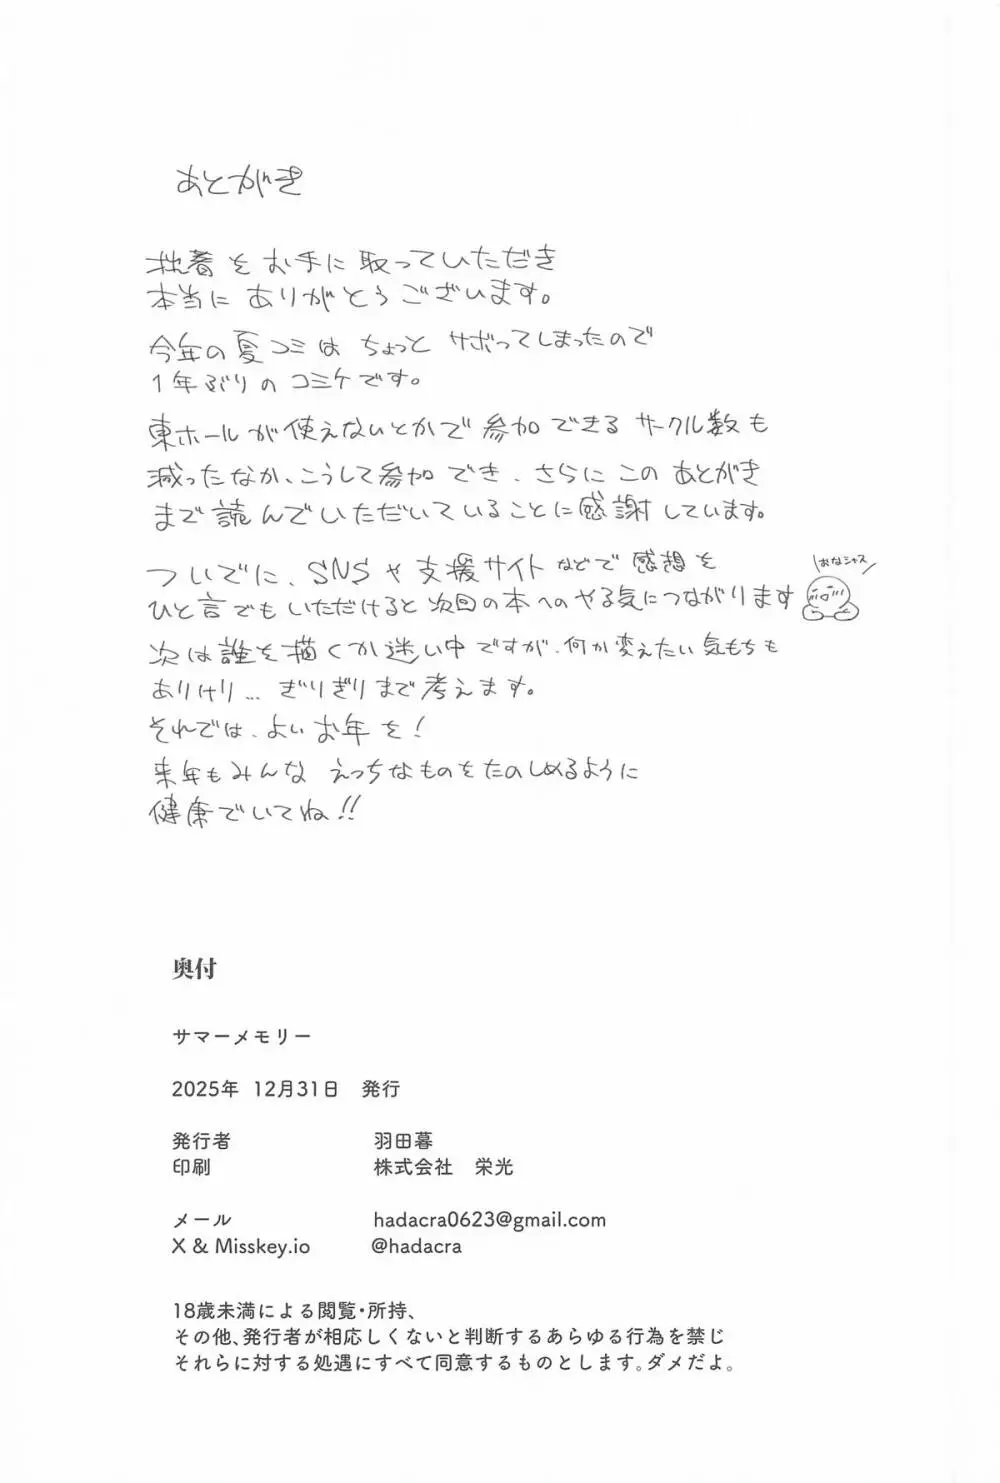 あとがき
拙著をお手に取っていただき
本当にありがとうございます。
今年の夏コミはちょっとサボってしまったので
1年ぶりのコミケです。
東ホールが使えないとかで参加できるサークル数も
減ったなか、こうして参加でき、さらにこのあとがき
まで読んでいただいていることに感謝しています。
ついでに、SNSや支援サイトなどで感想を
おなシャス
ひと言でもいただけると次回の本へのやる気につながります
次は誰を描くか迷い中ですが、何か変えたい気もちも
ありけり... ぎりぎりまで考えます。
それでは、よいお年を!
来年もみんなえっちなものをたのしめるように
健康でいてね!!
奥付
サマーメモリー
2025年 12月31日 発行
発行者 羽田暮
印刷 株式会社 栄光
メール hadacra0623@gmail.com
X & Misskey.io @hadacra
18歳未満による閲覧・所持、
その他、発行者が相応しくないと判断するあらゆる行為を禁じ
それらに対する処遇にすべて同意するものとします。ダメだよ。